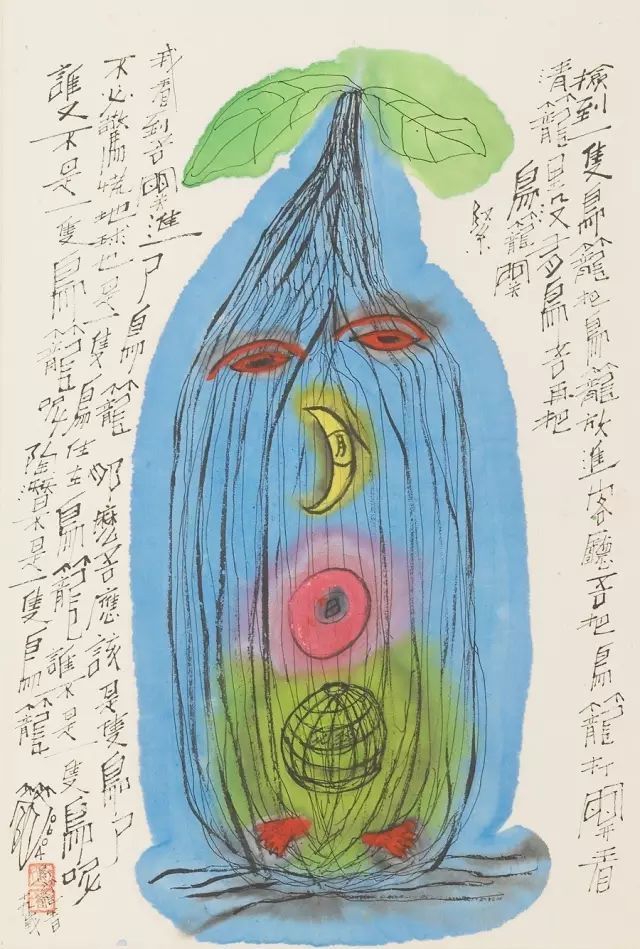 撿到一隻鳥籠把鳥籠放進客廳吾把鳥籠打開看
清籠里沒有鳥吾再把
鳥籠關
緊
我看到吾關進了鳥籠那麼吾應該是隻鳥了
不必驚慌地球也是一隻鳥住在鳥籠里誰不是一隻鳥呢
誰又不是一隻鳥籠呢不是一隻鳥籠
月
日